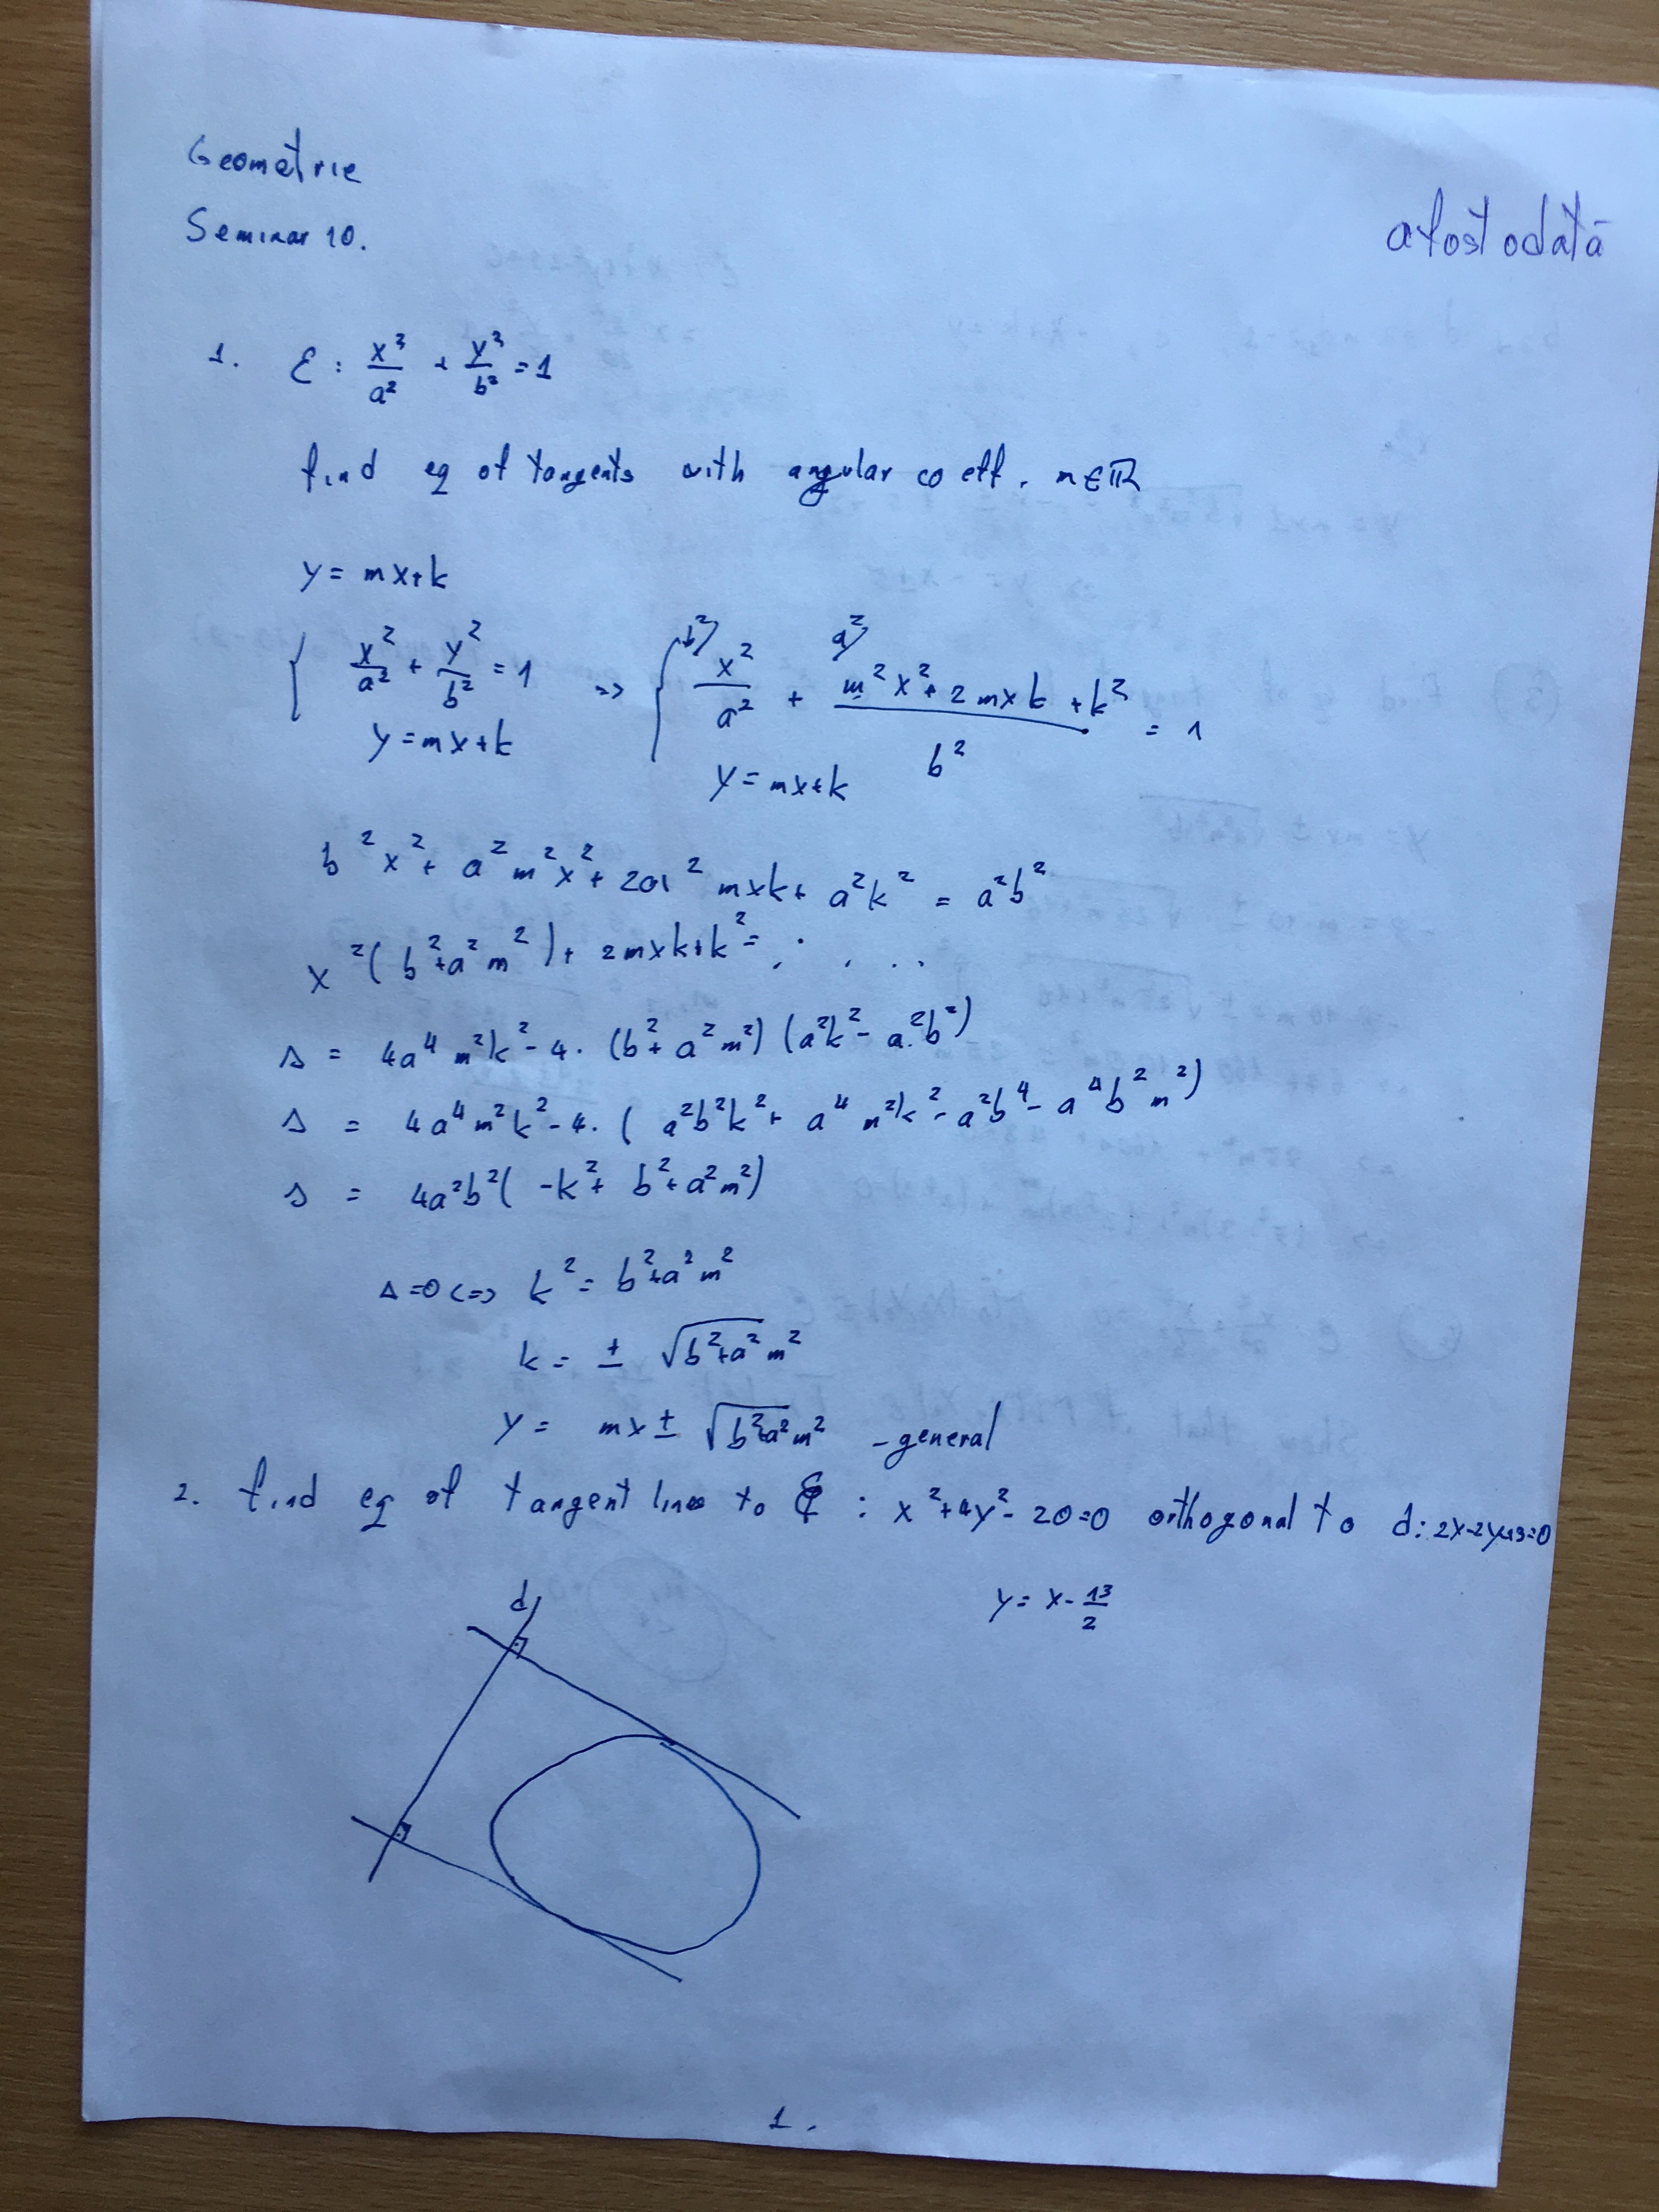 Geometrie
Seminar 10.
a fost odată
1. ℰ: x³/a² + y³/b² = 1
find eq of tangents with angular coeff. m∈ℝ
y = mx+k
{ x²/a² + y²/b² = 1 => { b²) x²/a² + a²) (m²x²+2mxk+k²)/b² = 1
y=mx+k y=mx+k
b²x² + a²m²x² + 2a²mxk + a²k² = a²b²
x²(b²+a²m²) + 2mxk+k² = . . . .
Δ = 4a⁴m²k² - 4·(b²+a²m²)(a²k² - a²b²)
Δ = 4a⁴m²k² - 4·(a²b²k² + a⁴m²k² - a²b⁴ - a⁴b²m²)
Δ = 4a²b²(-k² + b² + a²m²)
Δ=0 <=> k² = b²+a²m²
k = ± √(b²+a²m²)
y = mx ± √(b²+a²m²) - general
2. find eq of tangent lines to ℰ: x²+4y²-20=0 orthogonal to d: 2x-2y-13=0
y = x - 13/2
d
1.